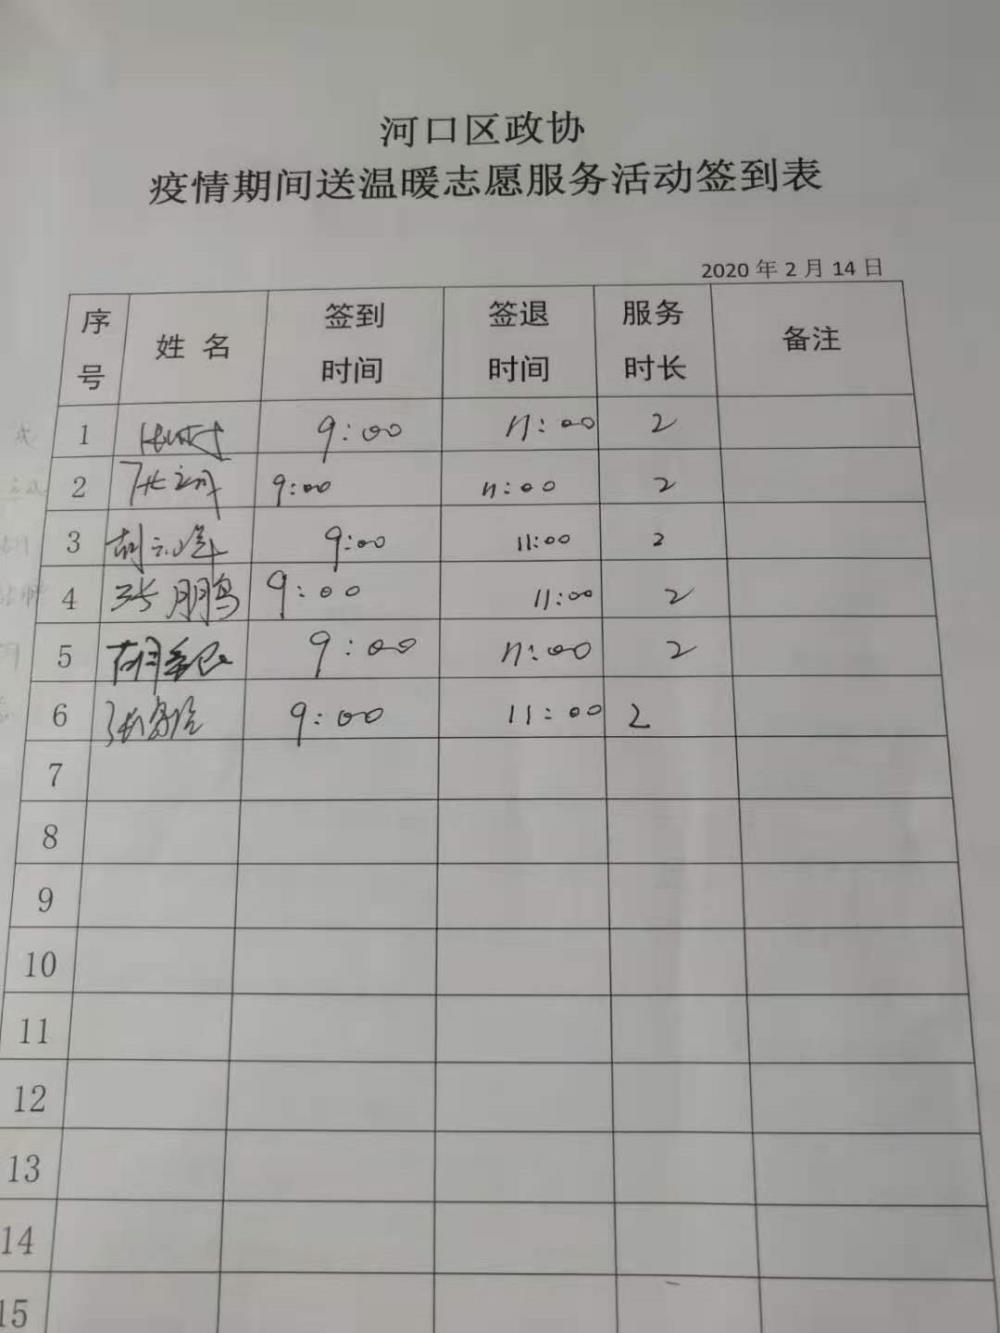 河口区政协
疫情期间送温暖志愿服务活动签到表
2020年2月14日
序号 姓名 签到时间 签退时间 服务时长 备注
1 9:00 11:00 2
2 9:00 11:00 2
3 胡 9:00 11:00 2
4 张鹏 9:00 11:00 2
5 胡 9:00 11:00 2
6 张 9:00 11:00 2
7
8
9
10
11
12
13
14
15